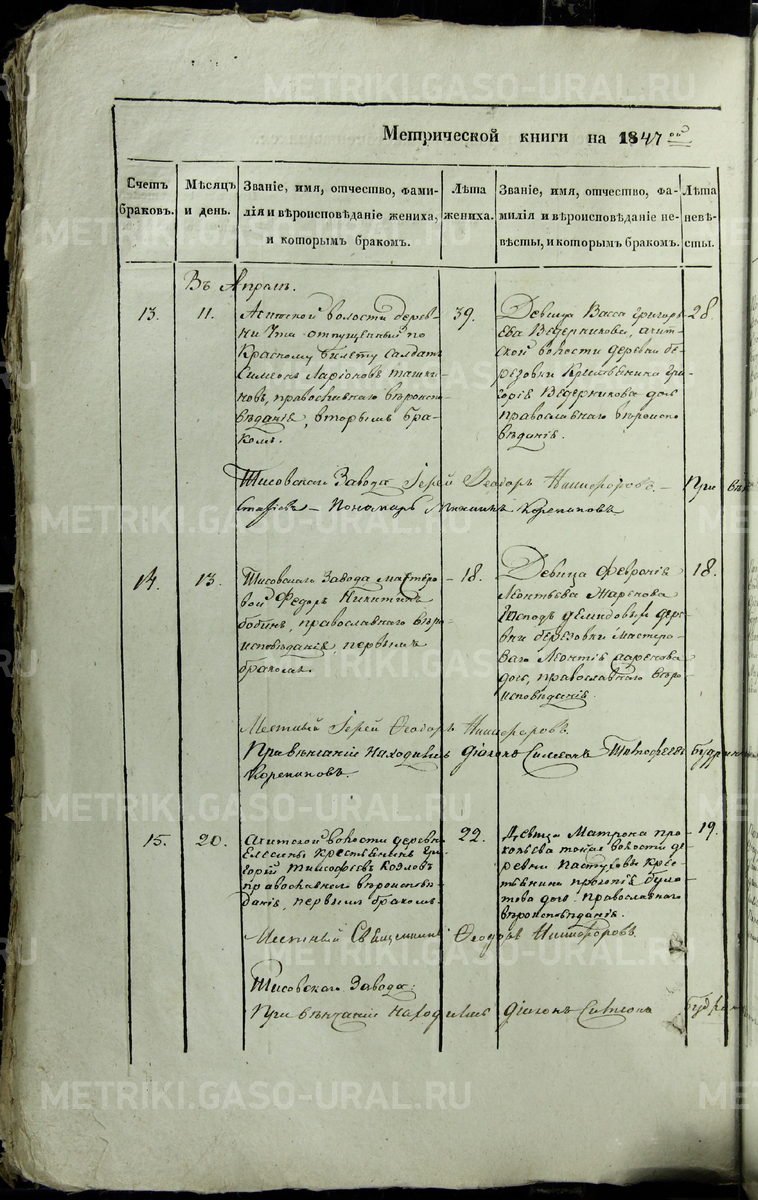 METRIKI.GASO-URAL.RU
Метрической книги на 1847ой
Счетъ браковъ.
Мѣсяцъ и день.
Званіе, имя, отчество, фами-
лія и вѣроисповѣданіе жениха,
и которымъ бракомъ.
Лѣта жениха.
Званіе, имя, отчество, фа-
милія и вѣроисповѣданіе не-
вѣсты, и которымъ бракомъ.
Лѣта невѣ-
сты.
Въ Апрѣлѣ.
13.
11.
Ачитской волости дерев-
ни Uта отпущенный по
Красному билету солдатъ
Симеонъ Ларіоновъ
православнаго вѣроиспо-
вѣданія, вторымъ бра-
комъ.
39.
Девица Васса Григорь-
ева Ведерникова, ачит-
ской волости деревни бе-
резовки Крестьянина Гри-
горія Ведерникова дочь
православнаго вѣроиспо-
вѣданія.
28.
Тисовскаго Завода Іерей Ѳеодоръ Никифоровъ
При
Пономарь Корепановъ
14.
13.
Тисовскаго Завода мастеро-
вой Федоръ Никитинъ
православнаго вѣро-
исповѣданія, первымъ
бракомъ.
18.
Девица Февронія
Леонтьева
Господъ Демидовыхъ дерев-
ни березовки мастеро-
ваго Леонтія
дочь, православнаго вѣро-
исповѣданія.
18.
Местный Іерей Ѳеодоръ Никифоровъ
При вѣнчаніи находились діаконъ Симеонъ
Корепановъ.
15.
20.
Ачитской волости деревни
крестьянинъ Гри-
горій Тимофеевъ Козловъ
православнаго вѣроисповѣ-
данія, первымъ бракомъ.
22.
Девица Матрона Про-
копьева тойже волости де-
ревни Пастуховы крес-
тьянина Прокопія Була-
това дочь православнаго
вѣроисповѣданія.
19.
Местный Священникъ Ѳеодоръ Никифоровъ
Тисовскаго Завода:
При вѣнчаніи находились діаконъ Симеонъ